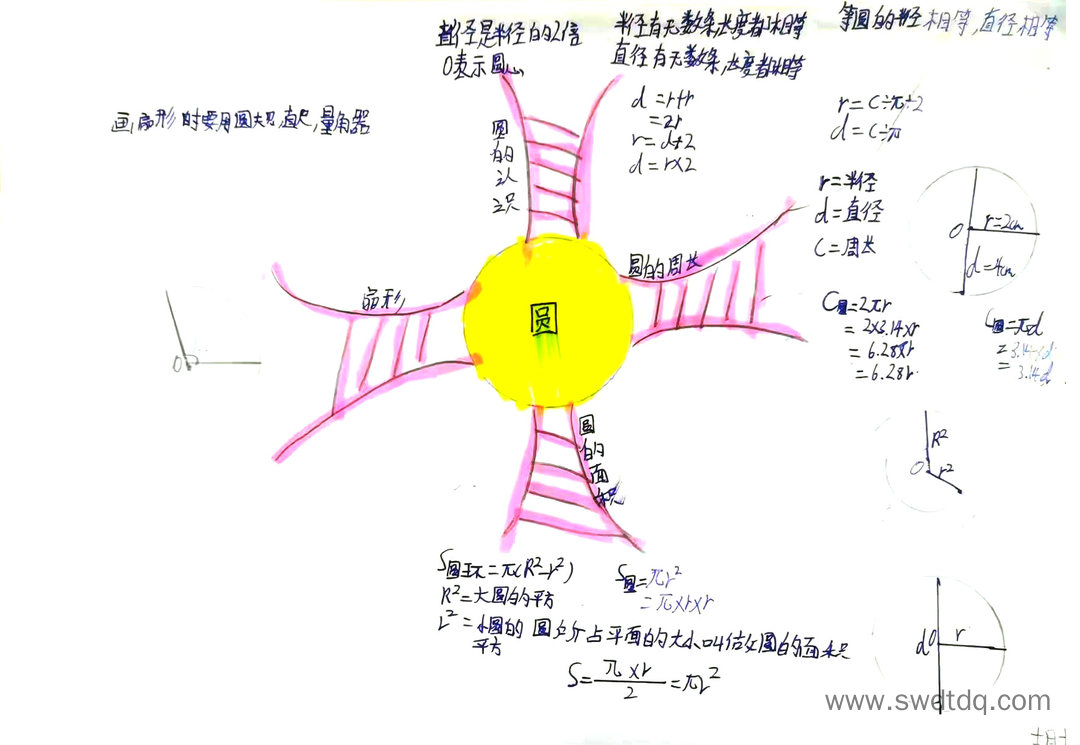 直径是半径的2倍
O表示圆心
半径有无数条,长度都相等
直径有无数条,长度都相等
等圆的半径相等,直径相等
画扇形时要用圆规,直尺,量角器
圆的认识
d=r+r
=2r
r=d÷2
d=r×2
r=C÷π÷2
d=C÷π
r=半径
d=直径
C=周长
O
r=2cm
d=4cm
圆的周长
扇形
圆
O
C圆=2πr
=2×3.14×r
=6.28×r
=6.28r
C圆=πd
=3.14×d
=3.14d
R²
O
r²
圆的面积
S圆环=π(R²-r²)
R²=大圆的平方
r²=小圆的平方
S圆=πr²
=π×r×r
圆所占平面的大小叫做圆的面积
S=π×r/2=πr²
d
O
r
www.swdtdq.com